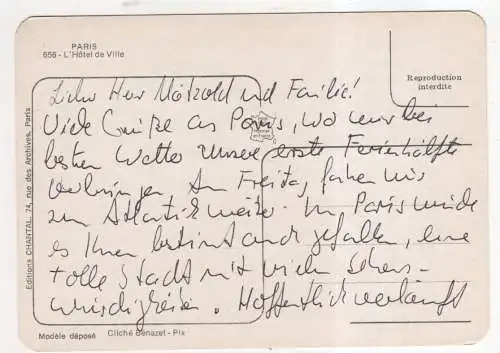 PARIS
656 - L'Hôtel de Ville
Reproduction
interdite
Lieber Herr Mätzold und Familie!
Viele Grüße aus Paris, wo wir bei
besten Wetter unsere erste Ferienhälfte
verbringen. Am Freitag fahren wir
zum Atlantik weiter. In Paris würde
es Ihnen bestimmt auch gefallen, eine
tolle Stadt mit vielen Sehens-
würdigkeiten. Hoffentlich verläuft
Editions CHANTAL, 74, rue des Archives, Paris
Modèle déposé
Cliché Benazet - Pix